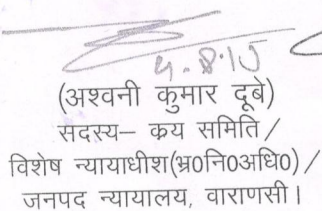 4.8.15
(अश्वनी कुमार दूबे)
सदस्य– क्रय समिति /
विशेष न्यायाधीश(भ्र0नि0अधि0) /
जनपद न्यायालय, वाराणसी।